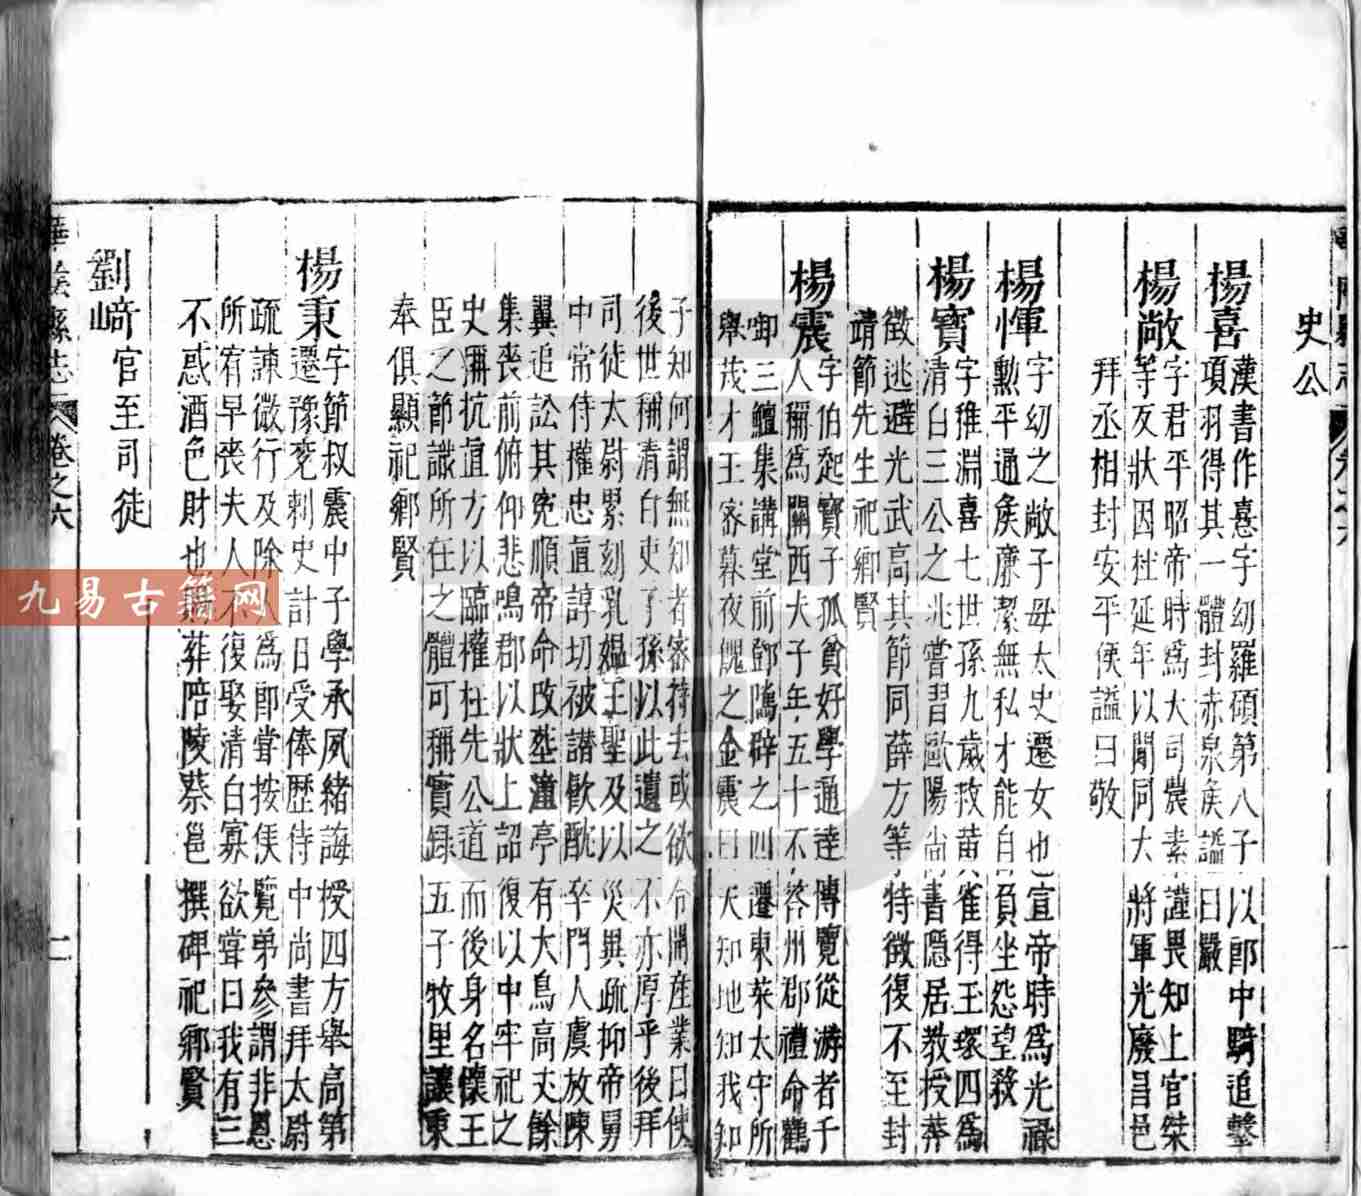 史公
楊喜漢書作憙字幼羅碩第八子以郎中騎追擊
項羽得其一體封赤泉侯謚曰嚴
楊敞字君平昭帝時爲大司農素謹畏知上官桀
等反狀因杜延年以聞同大將軍光廢昌邑
拜丞相封安平侯謚曰敬
楊惲字幼之敞子母太史遷女也宣帝時爲光祿
勲平通侯廉潔無私才能自負坐怨望殺
楊寶字稚淵喜七世孫九歲救黄雀得玉環四爲
清白三公之兆嘗習歐陽尚書隱居教授莽
徵逃避光武高其節同薛方等特徵復不至封
靖節先生祀鄉賢
楊震字伯起寶子孤貧好學通達博覽從游者千
人稱爲關西夫子年五十不答州郡禮命鸛
啣三鱣集講堂前鄧隲辟之四遷東萊太守所
舉茂才王密暮夜餽之金震曰天知地知我知
子知何謂無知者密持去或欲令開産業曰使
後世稱清白吏子孫以此遺之不亦厚乎後拜
司徒太尉累刻乳媪王聖及以災異疏抑帝舅
中常侍權忠直諄切被譖飲酖卒門人虞放陳
翼追訟其寃順帝命改塟潼亭有大鳥高丈餘
集喪前俯仰悲鳴郡以狀上詔復以中牢祀之
史稱抗直方以臨權枉先公道而後身名懷王
臣之節識所在之體可稱實録五子牧里讓秉
奉俱顯祀鄉賢
楊秉字節叔震中子學承夙緒誨授四方舉高第
遷豫兖刺史計日受俸歷侍中尚書拜太尉
疏諫微行及除 爲郎嘗按侯覽弟參謂非恩
所宥早喪夫人不復娶清白寡欲嘗曰我有三
不惑酒色財也 葬陪陵蔡邕撰碑祀鄉賢
劉崎官至司徒
華陰縣志 卷之六 二
九易古籍网